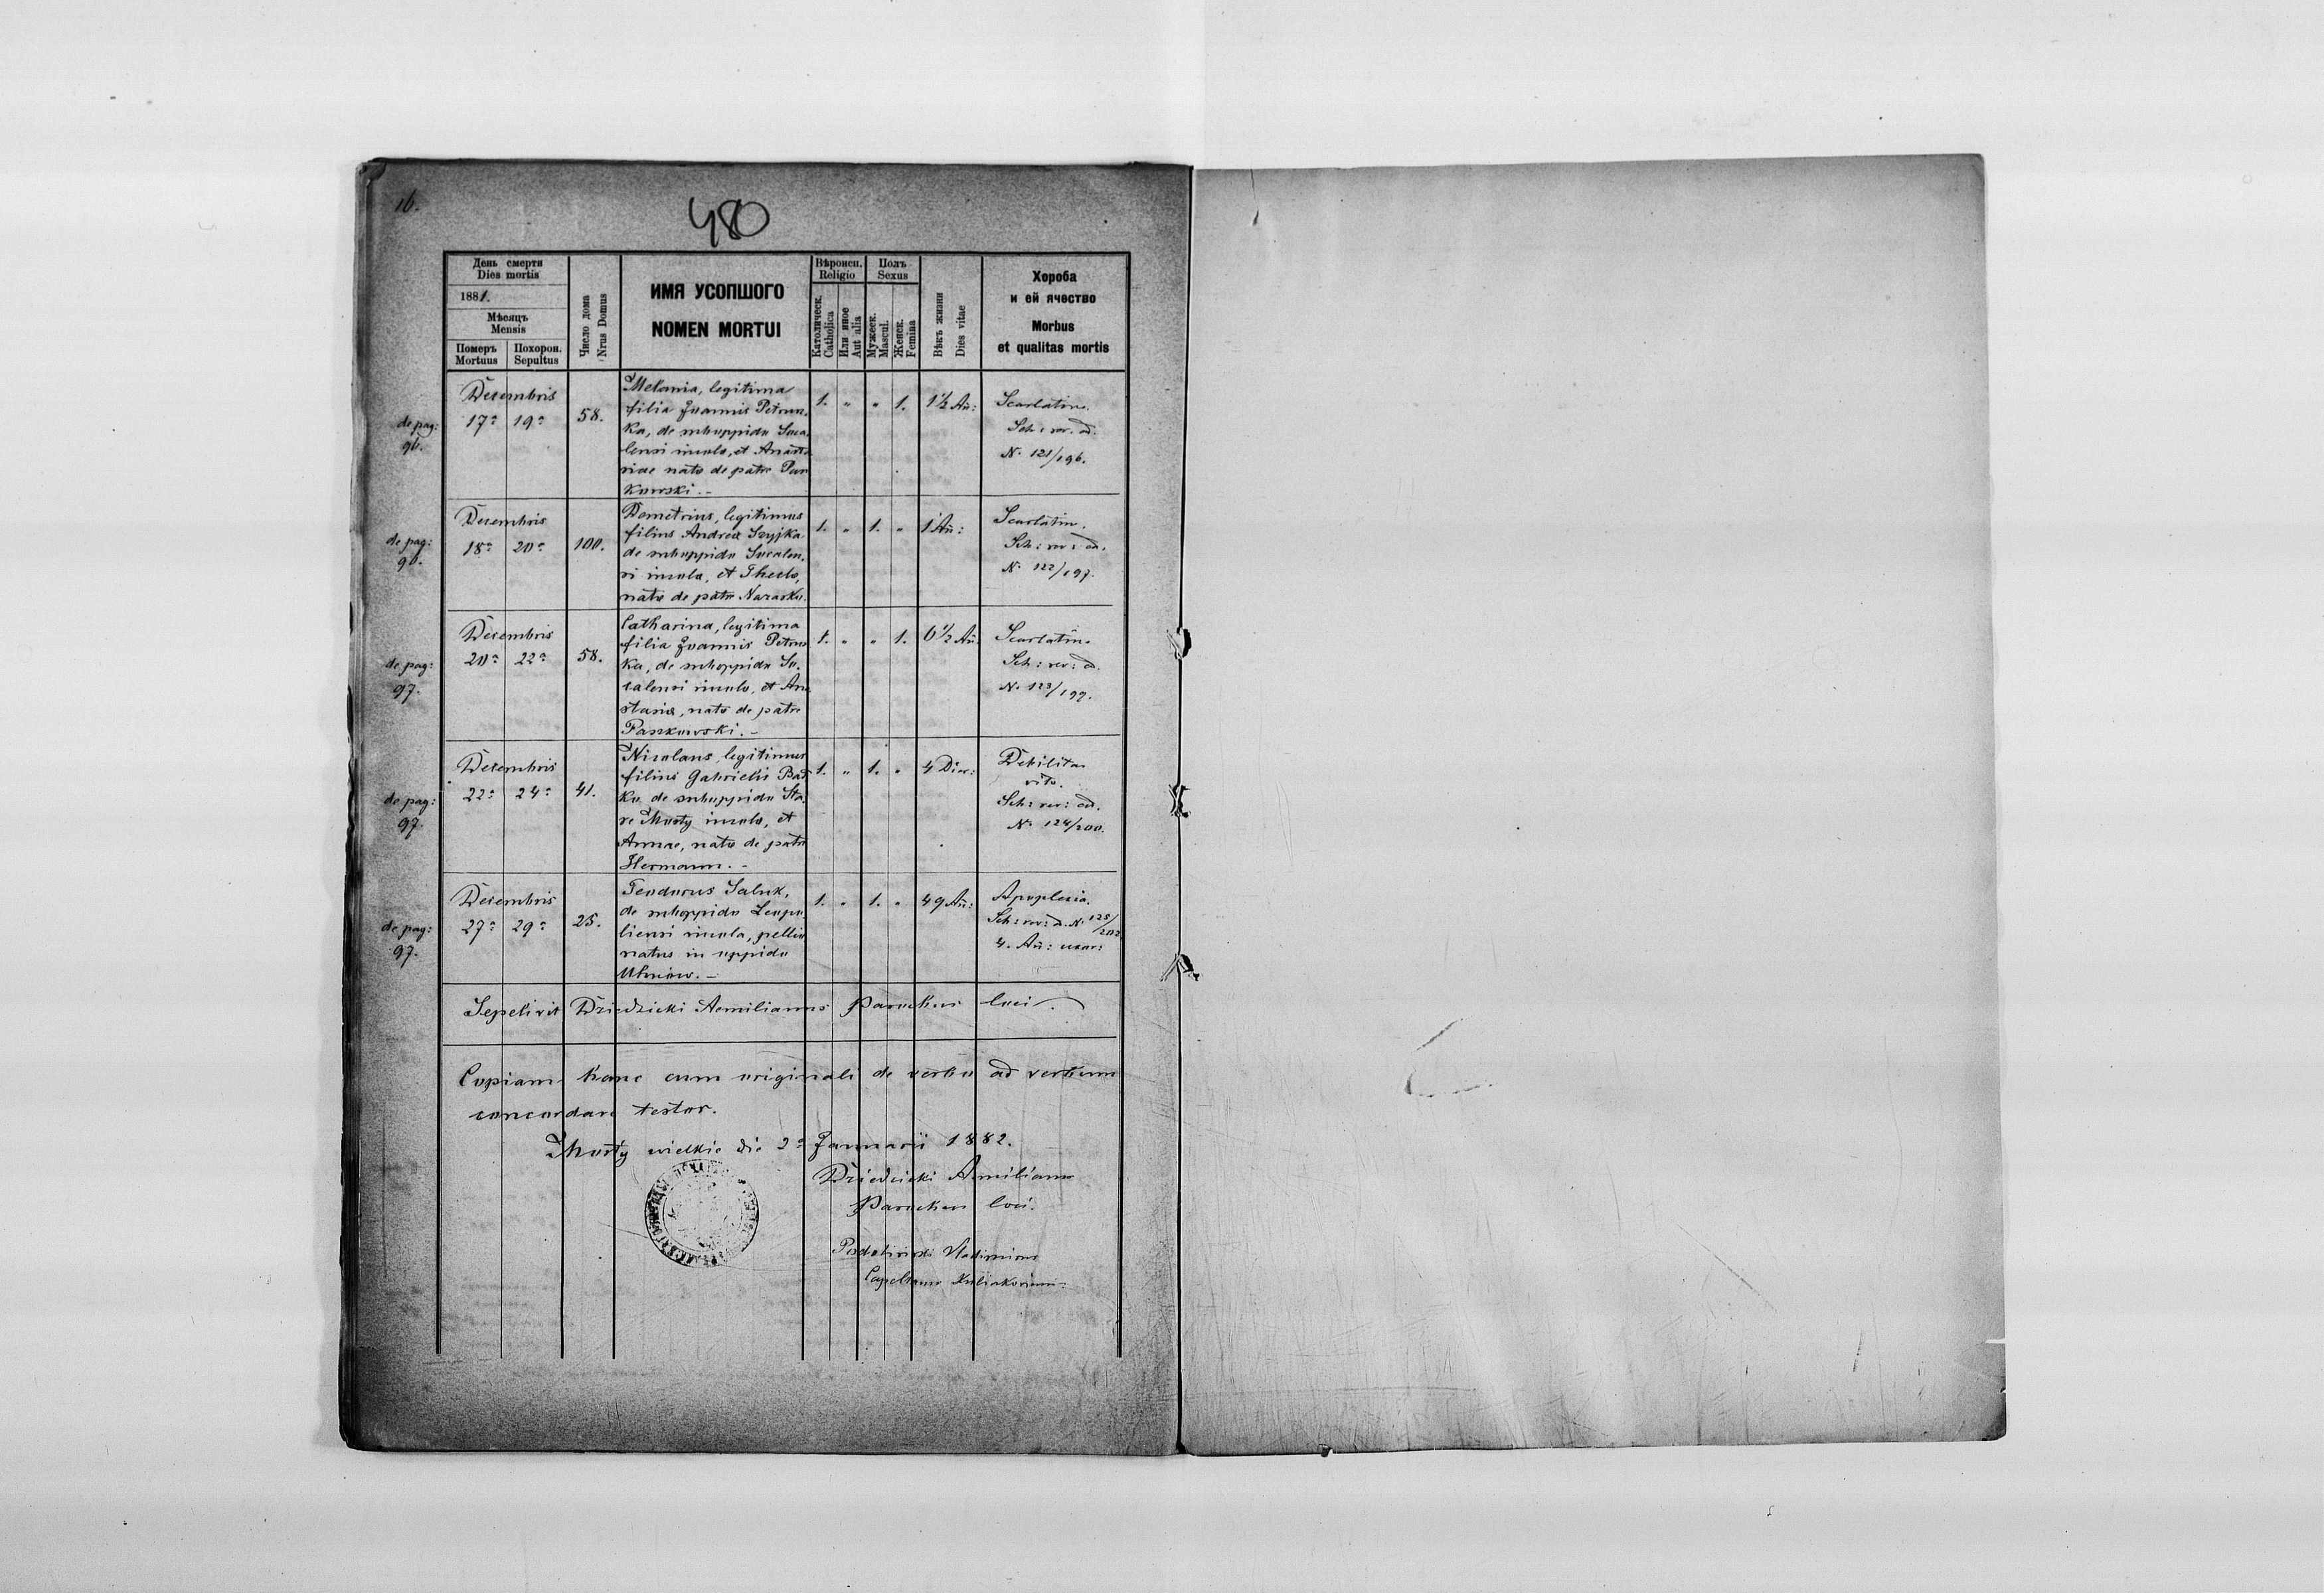 16.
480
День смерти
Dies mortis
1881.
Мѣсяцъ
Mensis
Померъ Mortuus
Похорон. Sepultus
Число дома
Nrus Domus
ИМЯ УСОПШОГО
NOMEN MORTUI
Вѣроисп.
Religio
Католическ.
Catholica
Или иное
Aut alia
Полъ
Sexus
Мужеск.
Mascul.
Женск.
Femina
Вѣкъ жизни
Dies vitae
Хороба
и ей ячество
Morbus
et qualitas mortis
de pag:
96.
Decembris
17ª 19ª
58.
Melania, legitima
filia Joannis Petrun-
ka, de suboppido Soca-
lensi incola, et Anasta-
siae nata de patre Pan
kowski. -
1. " " 1.
1½ An:
Scarlatina.
Sch: rev. ad.
N. 121/196.
de pag:
96.
Decembris
18ª 20ª
100.
Demetrius, legitimus
filius Andreæ Szyjka
de suboppido Socalen-
si incola, et Thecla,
nata de patre Narasku.
1. " 1. "
1 An:
Scarlatin.
Sch: rev: ad.
N. 122/197.
de pag:
97.
Decembris
20ª 22ª
58.
Catharina, legitima
filia Joannis Petrun
ka, de suboppido So-
calensi incola, et Ana
stasia, nata de patre
Pankowski. -
1. " " 1.
6½ An.
Scarlatin.
Sch: rev: ad.
N. 123/199.
de pag:
97.
Decembris
22ª 24ª
41.
Nicolaus, legitimus
filius Gabrielis Bad
ka de suboppido Sta-
re Mosty incola, et
Annae, nata de patre
Hermann. -
1. " 1. "
4 Dier:
Debilitas
vitæ.
Sch: rev: ad.
N. 124/200.
de pag:
97.
Decembris
27ª 29ª
25.
Teodorus Saluk,
de suboppido Leopo-
liensi incola, pellio
natus in oppido
Uhniow. -
1. " 1. "
49 An:
Apoplexia.
Sch: rev: ad. N. 125/202.
4. An: uxor:
Sepelivit Dziedzicki Aemilianus Parochus loci.
Copiam hanc cum originali de verbo ad verbum
concordare testor.
Mosty wielkie die 2ª Januarii 1882.
Dziedzicki Aemilianus
Parochus loci.
Vladimirus
Capellanus